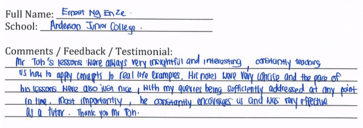 Full Name: Ernest Ng En Ze.
School: Anderson Junior College.
Comments / Feedback / Testimonial:
Mr Toh's lessons were always very insightful and interesting, constantly teaching
us how to apply concepts to real life examples. His notes were very concise and the pace of
his lessons were also just nice, with my queries being sufficiently addressed at any point
in time. Most importantly, he constantly encourages us and was very effective
as a tutor. Thank you Mr Toh.